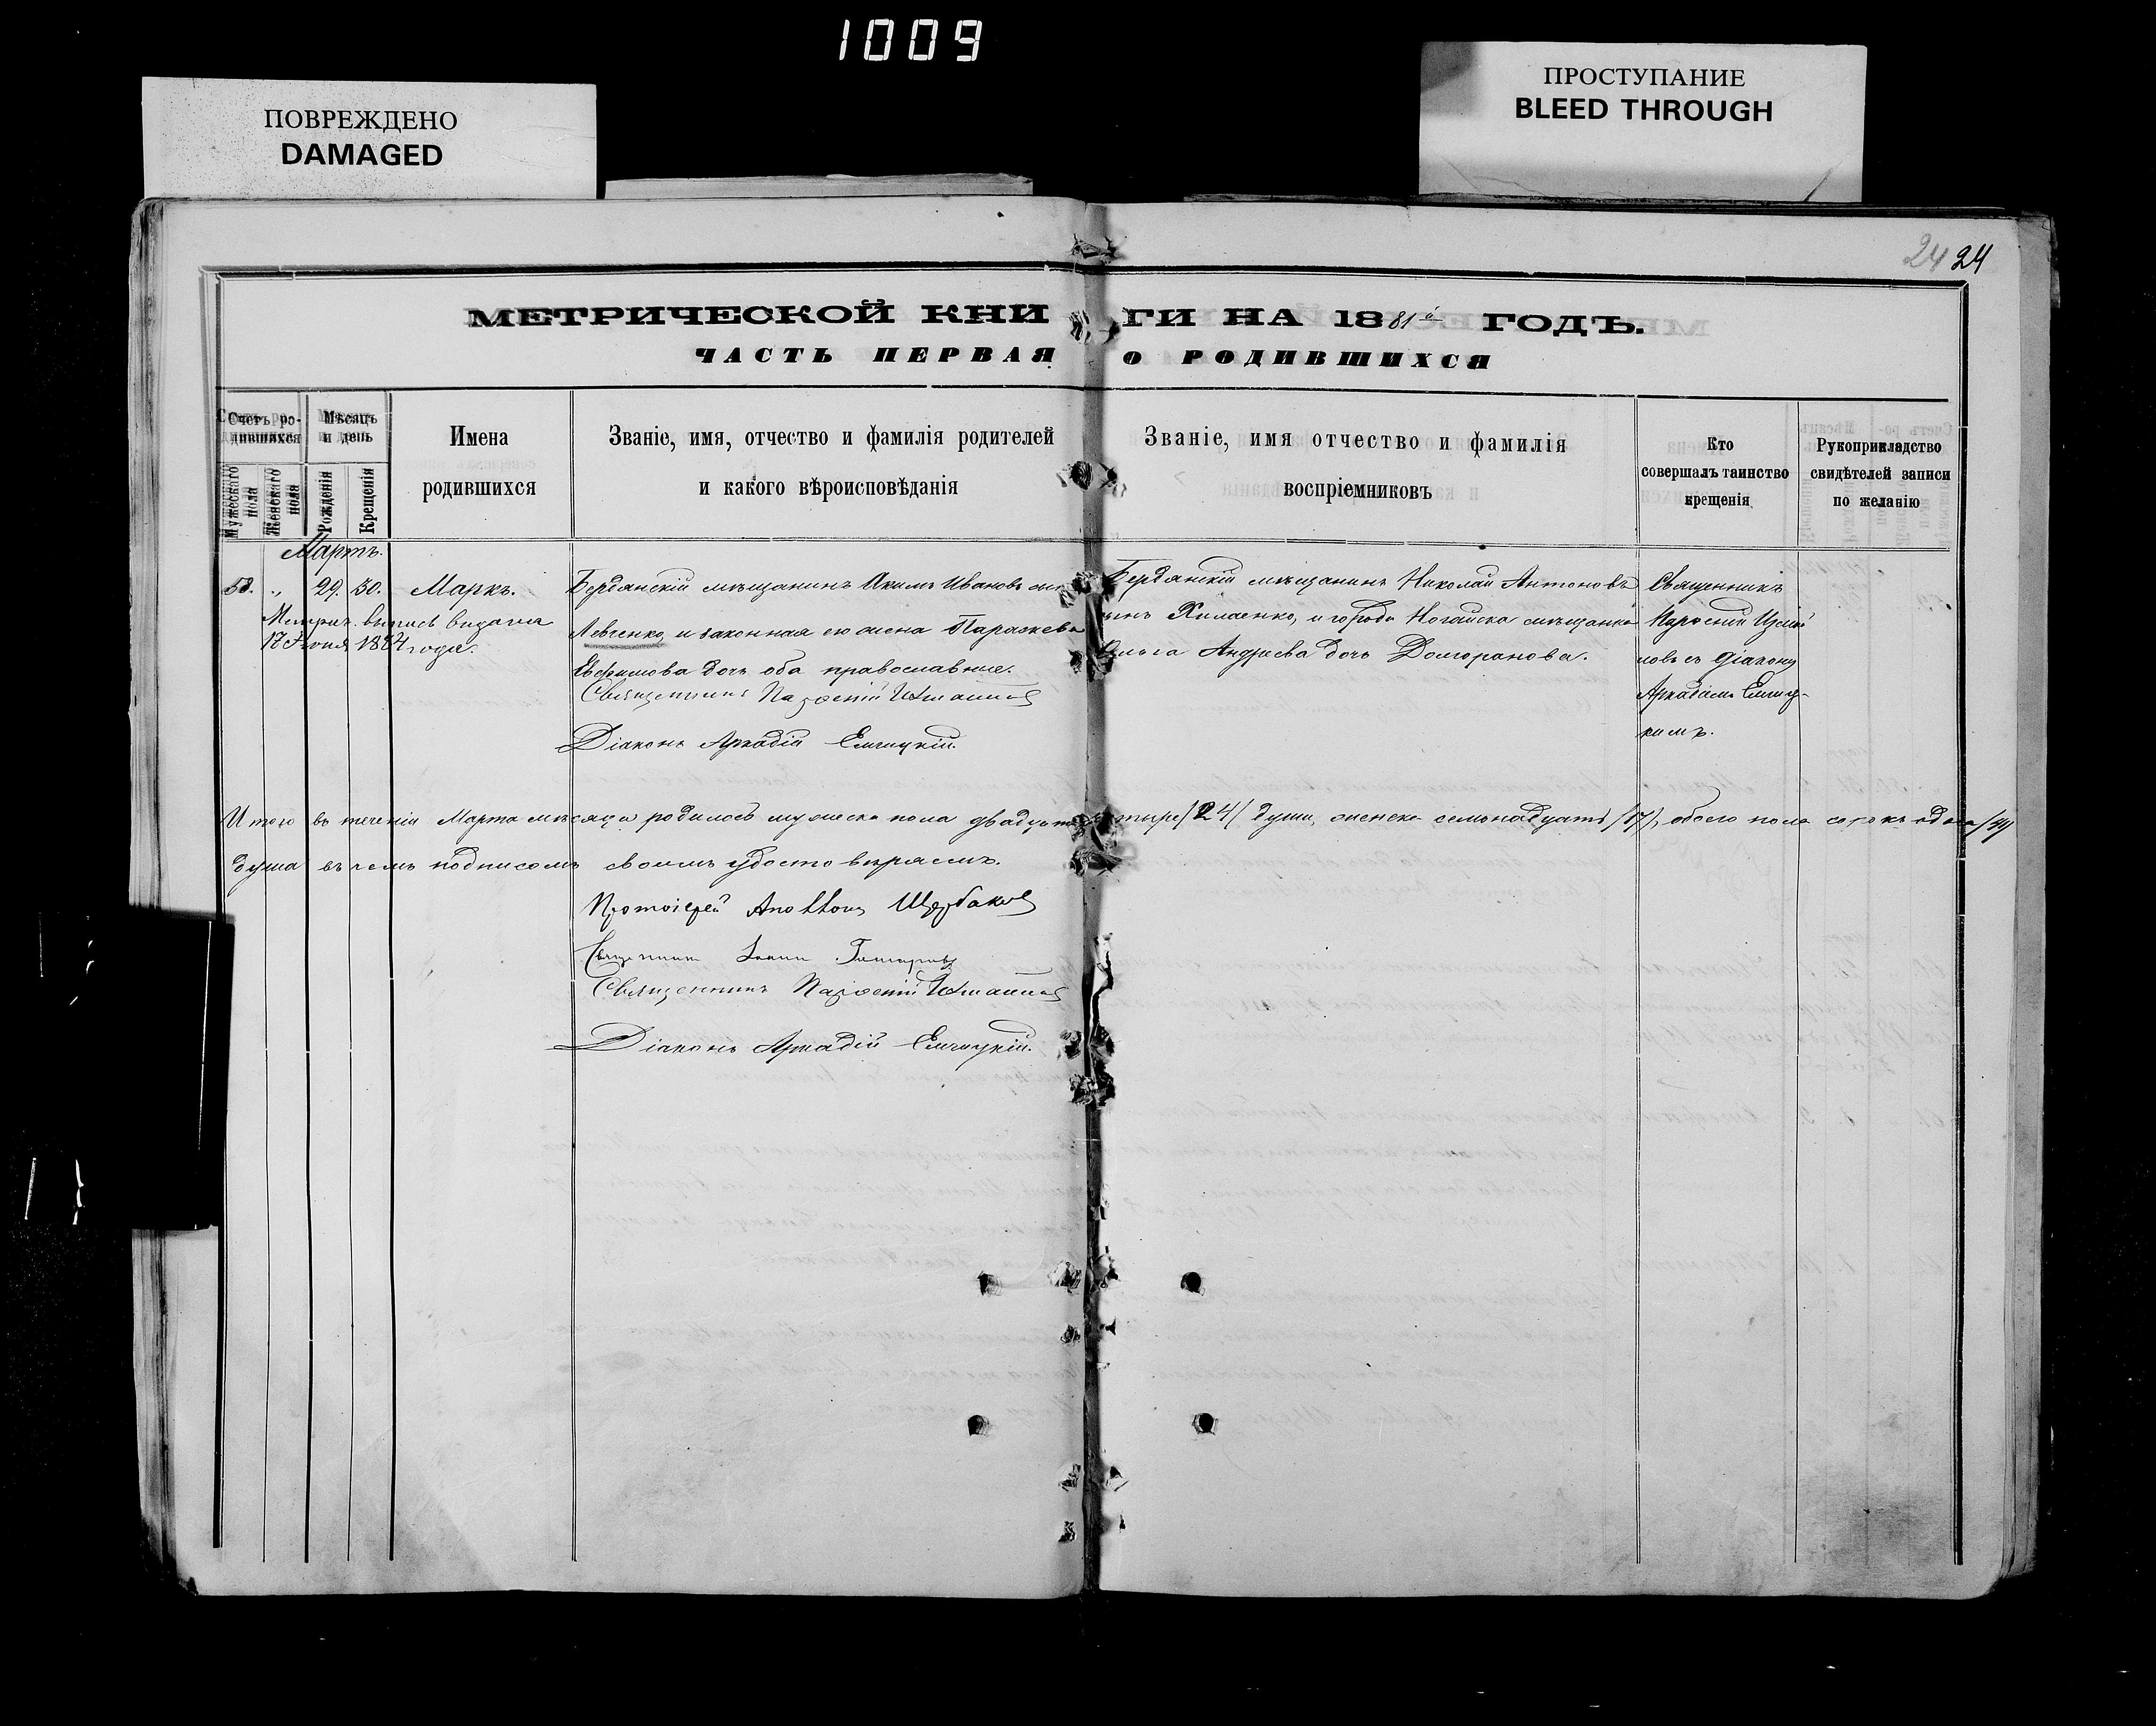 1009
ПОВРЕЖДЕНО
DAMAGED
ПРОСТУПАНИЕ
BLEED THROUGH
24 24
МЕТРИЧЕСКОЙ КНИ ГИ НА 1881й ГОДЪ.
ЧАСТЬ ПЕРВАЯ О РОДИВШИХСЯ
Счетъ ро-
дившихся
Мужескаго пола
Женскаго пола
Мѣсяцъ
и день
Рожденія
Крещенія
Имена
родившихся
Званіе, имя, отчество и фамилія родителей
и какого вѣроисповѣданія
Званіе, имя отчество и фамилія
воспріемниковъ
Кто
совершалъ таинство
крещенія
Рукоприкладство
свидѣтелей записи
по желанію
Мартъ.
58. „ 29. 30. Маркъ.
Метрич. выпись выдана
17 Іюня 1884 года.
Бердянскій мѣщанинъ Акимъ Ивановъ сынъ
Левченко, и законная его жена Параскева
Евфимова дочь оба православные.
Священникъ
Діаконъ Аркадій Емчицкій.
Бердянскій мѣщанинъ Николай Антоновъ
сынъ и города Ногайска мѣщанка
Ольга Андреева дочь
Священникъ
съ Діакономъ
Аркадіемъ Емчиц-
кимъ.
Итого въ теченіи Марта мѣсяца родилось мужеска пола двадцать четыре /24/ души, женска семьнадцать /17/, обоего пола сорокъ одна /41/
душа въ чемъ подписомъ своимъ удостовѣряемъ.
Протоіерей Аполлонъ Щербаковъ
Священникъ
Священникъ
Діаконъ Аркадій Емчицкій.